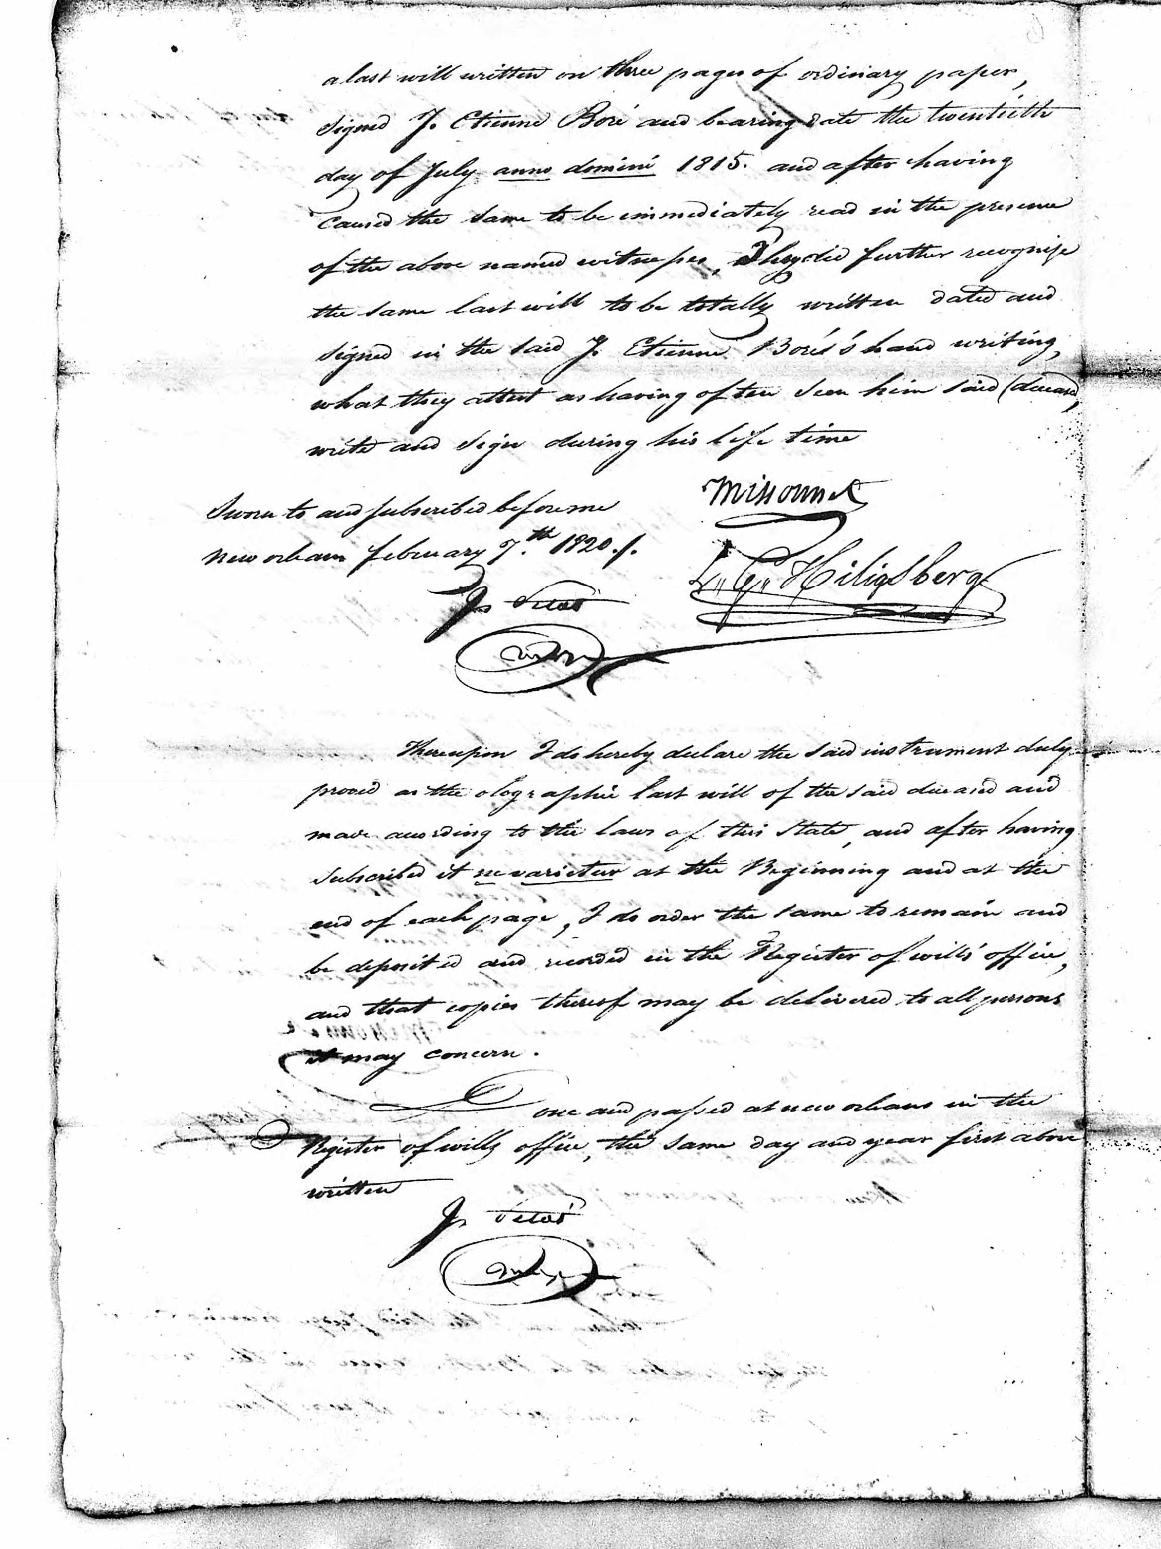 a last will written on three pages of ordinary paper,
signed J. Etienne Boré and bearing date the twentieth
day of July anno domini 1815. and after having
caused the same to be immediately read in the presence
of the above named witnesses, They did further recognise
the same last will to be totally written dated and
signed in the said J. Etienne Boré's hand writing,
what they attest as having often seen him said (deceased,
write and sign during his life time
Sworn to and subscribed before me
New orleans february 7.th 1820./.
Missonnet
L. G. Hiligsberg
Thereupon I do hereby declare the said instrument duly
proved as the olographie last will of the said deceased and
made according to the laws of this State, and after having
subscribed it ne varietur at the Beginning and at the
end of each page, I do order the same to remain and
be deposited and recorded in the Register of wills' office,
and that copies thereof may be delivered to all persons
it may concern.
Done and passed at new orleans in the
Register of wills office, the same day and year first above
written